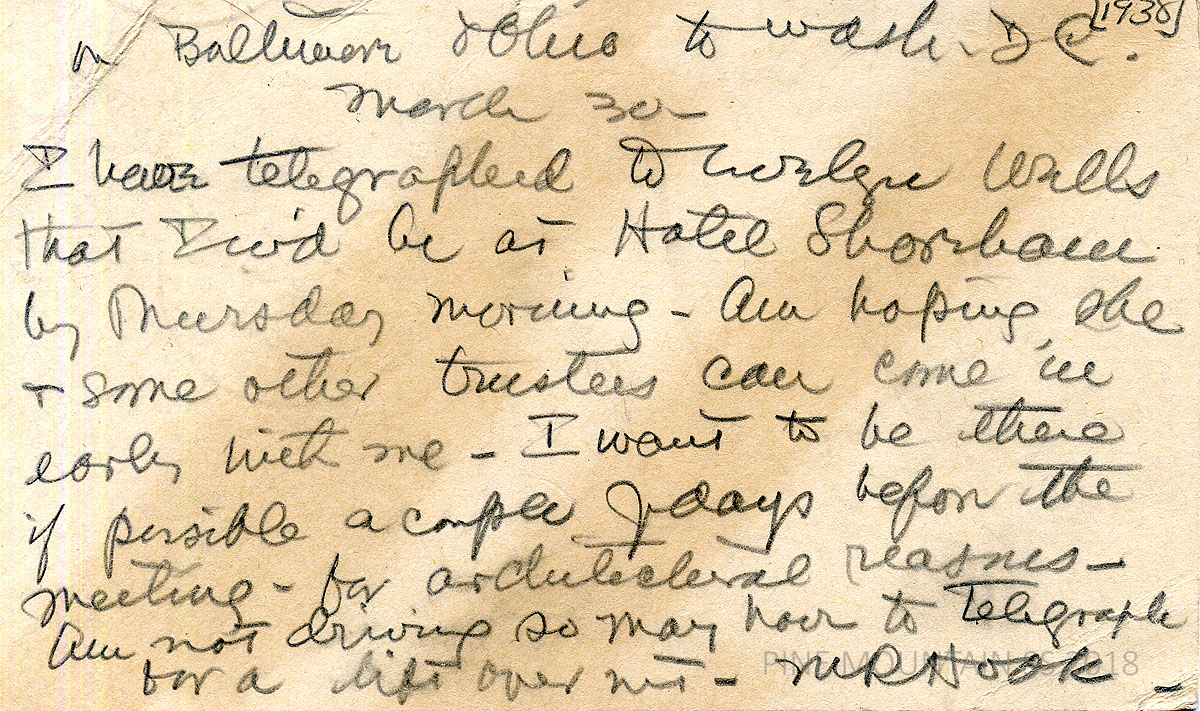 [1938]
on Baltimore & Ohio to Wash. D C.
March 30 -
I have telegraphed to Evelyn Wells
that I w'd be at Hotel Shoreham
by Thursday morning - Am hoping she
& some other trustees can come in
early with me - I want to be there
if possible a couple of days before the
meeting - for architectural reasons -
Am not driving so may have to telegraph
for a lift over mt - MR Hook -
PINE MOUNTAIN SS 2018